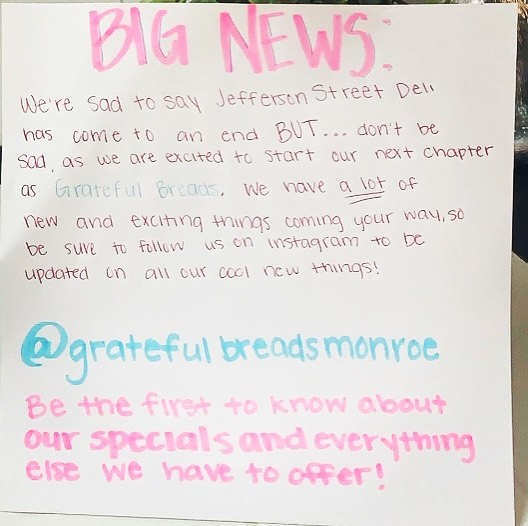 BIG NEWS:
We're sad to say Jefferson Street Deli
has come to an end BUT... don't be
sad, as we are excited to start our next chapter
as Grateful Breads. We have a lot of
new and exciting things coming your way, so
be sure to follow us on instagram to be
updated on all our cool new things!
@gratefulbreadsmonroe
Be the first to know about
our specials and everything
else we have to offer!